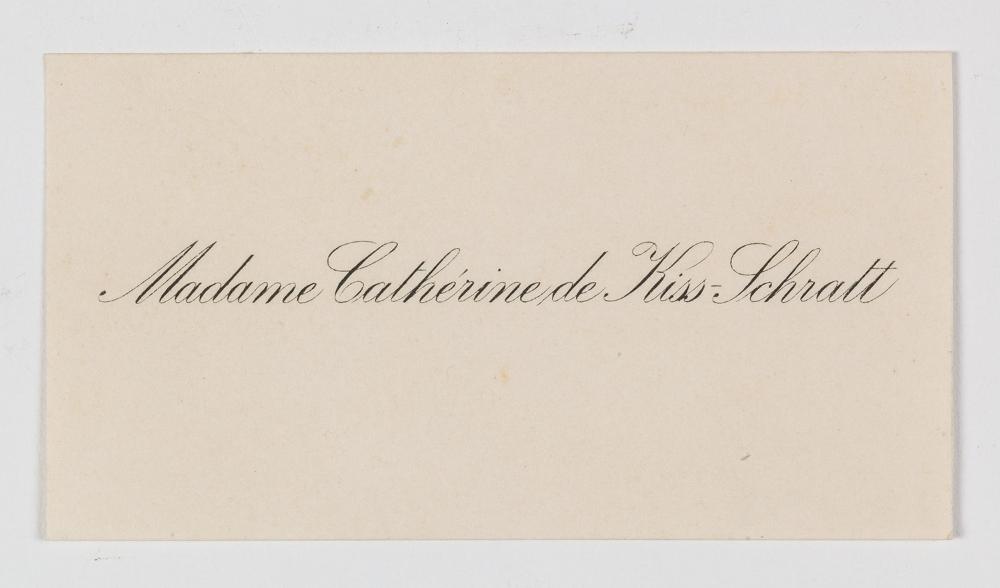 Madame Cathérine de Kiss-Schratt